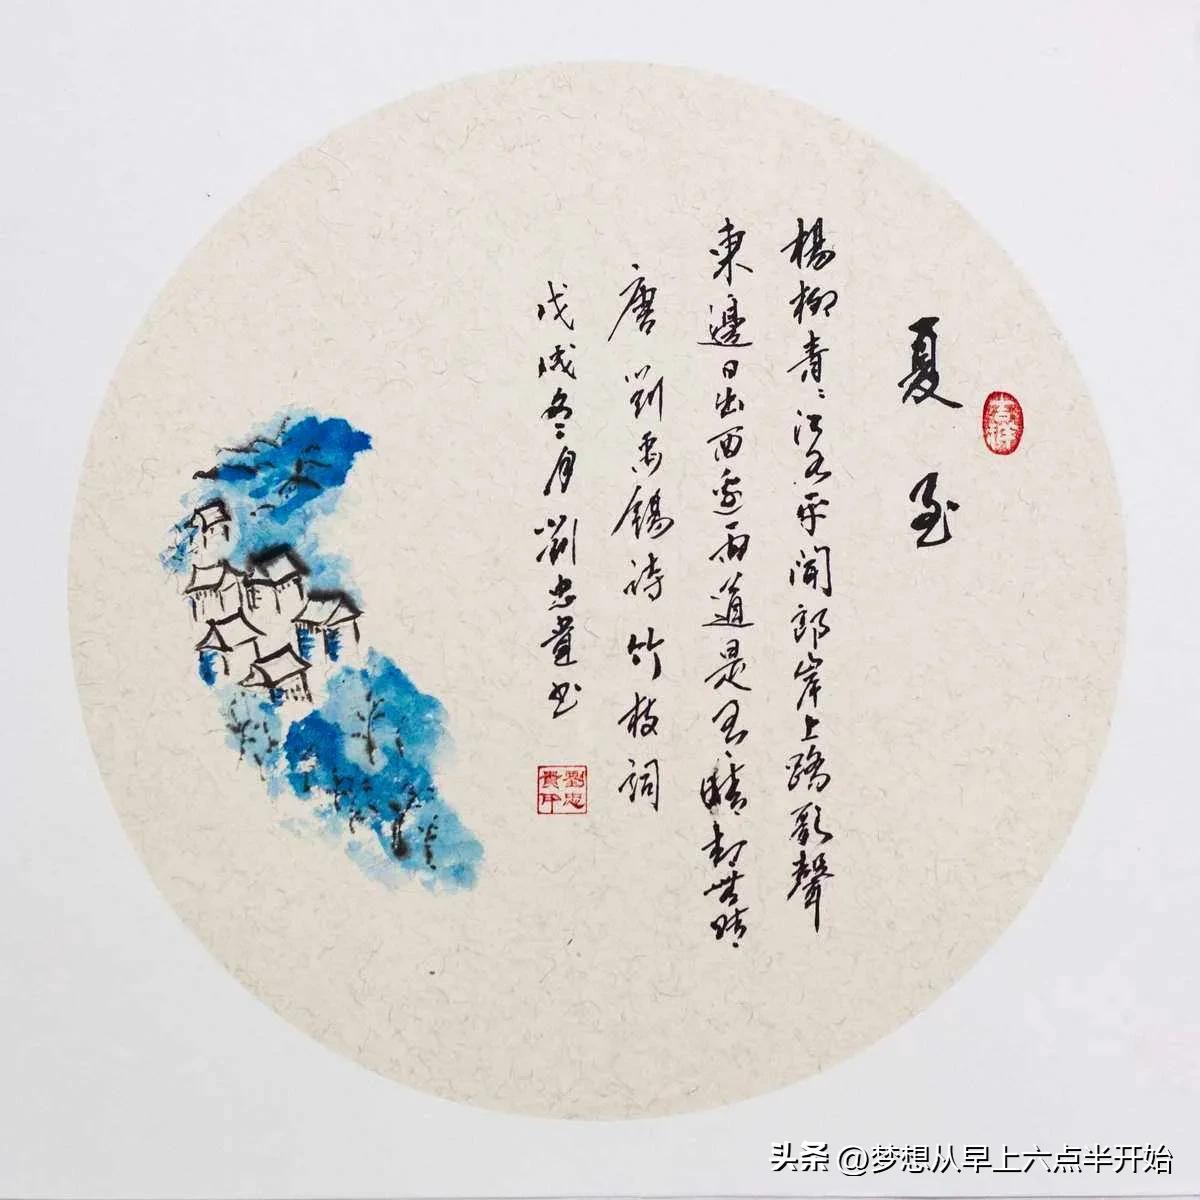 夏至
吉祥
楊柳青〻江水平聞郎岸上踏歌聲
東邊日出西邊雨道是无晴却無晴
唐劉禹錫詩竹枝詞
戊戌冬月劉忠貴书
劉忠貴印
头条 @梦想从早上六点半开始